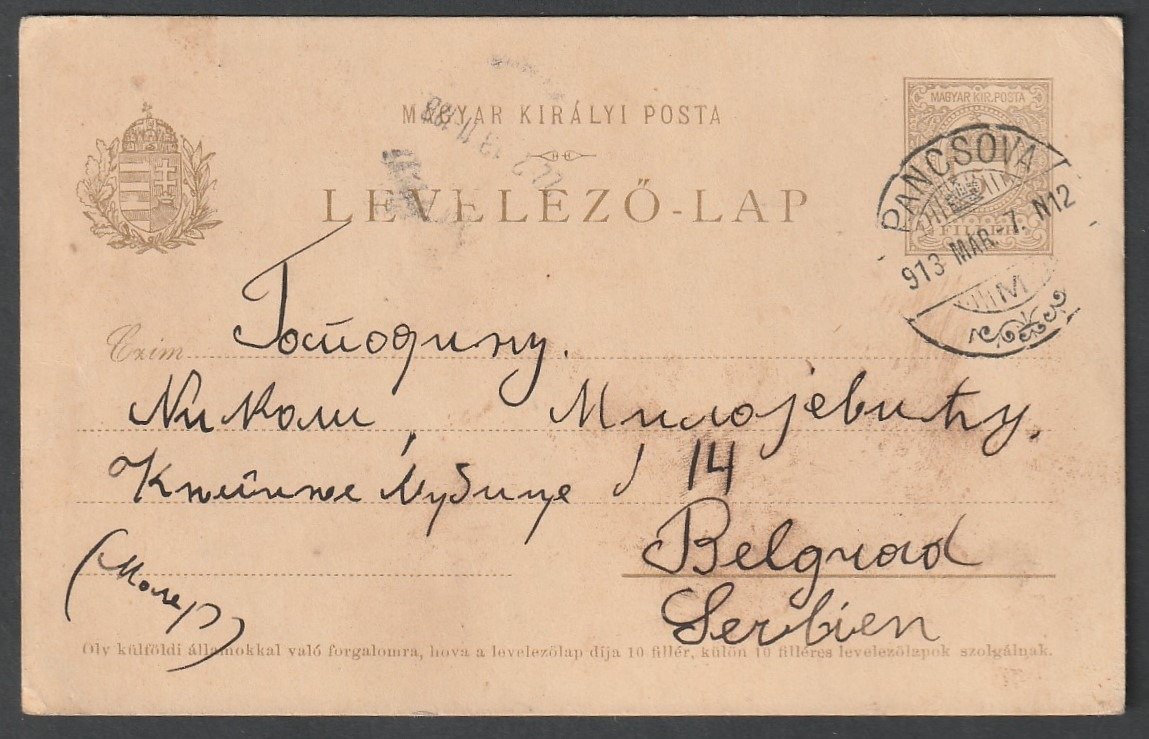 MAGYAR KIRÁLYI POSTA
LEVELEZŐ-LAP
MAGYAR KIR. POSTA
FILLÉR
PANCSOVA
913 MÁR. -7. N12
M
Czim
Господину.
Николи Милојевићу.
Књегиње Љубице 14
(Молер)
Belgrad
Serbien
Oly külföldi államokkal való forgalomra, hova a levelezőlap díja 10 fillér, külön 10 filléres levelezőlapok szolgálnak.